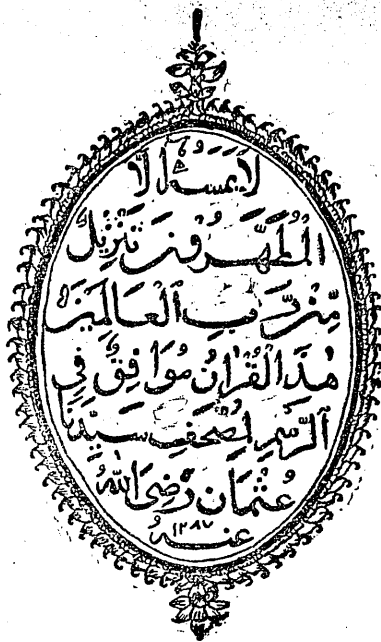 لَا يَمَسُّهُ إِلَّا
الْمُطَهَّرُونَ تَنْزِيلٌ
مِّنْ رَّبِّ الْعَالَمِينَ
هٰذَا الْقُرْاٰنُ مُوَافِقٌ فِي
الرَّسْمِ لِمُصْحَفِ سَيِّدِنَا
عُثْمَان رَضِىَ اللّٰهُ
عنهُ ١٢٨٧